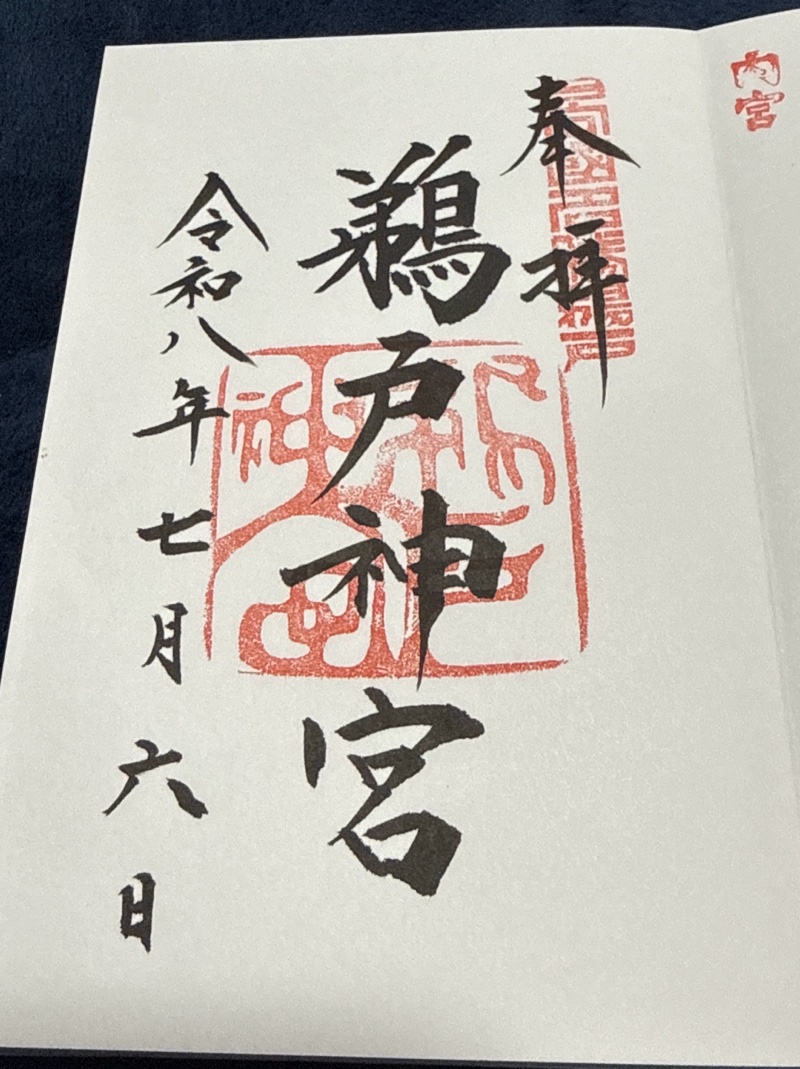 内宮
奉拝
鵜戸神宮
令和八年七月六日